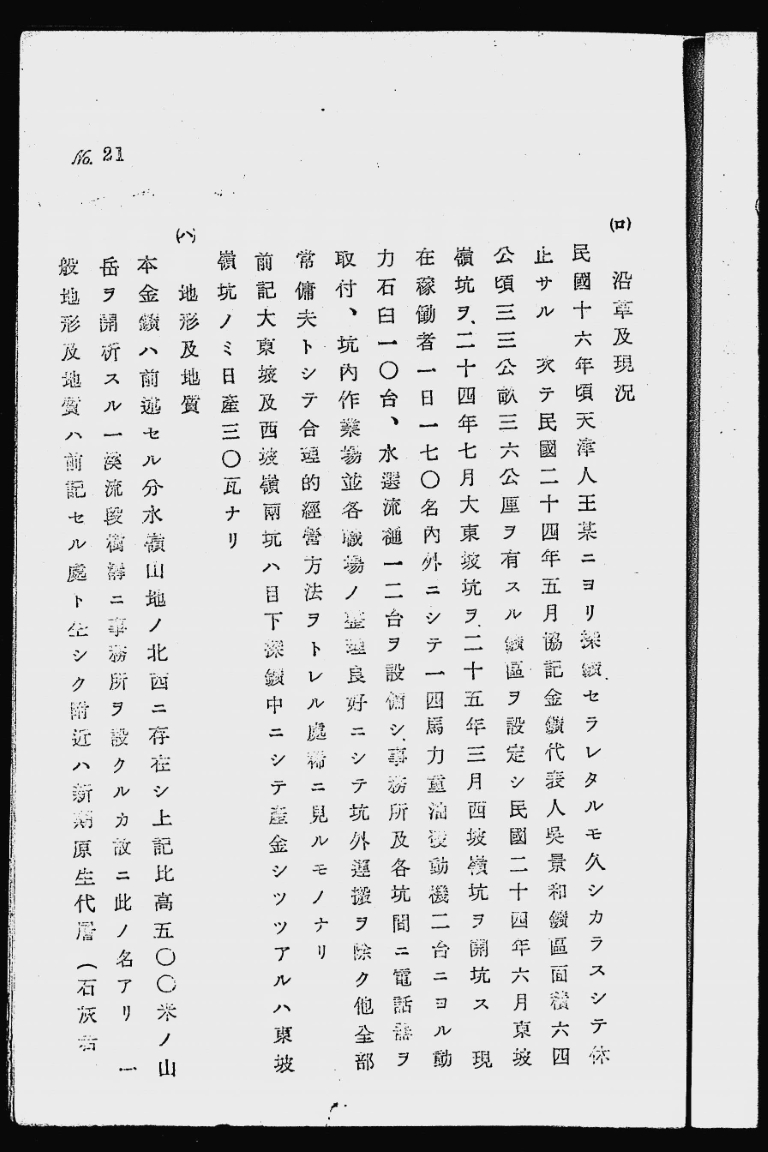 No. 21
(ロ)
沿革及現況
民國十六年頃天津人王某ニヨリ採鑛セラレタルモ久シカラスシテ休
止サル 次テ民國二十四年五月協記金鑛代表人吳景和鑛區面積六四
公頃三三公畝三六公厘ヲ有スル鑛區ヲ設定シ民國二十四年六月東坡
嶺坑ヲ、二十四年七月大東坡坑ヲ、二十五年三月西坡嶺坑ヲ開坑ス 現
在稼働者一日一七〇名內外ニシテ一四馬力重油發動機二台ニヨル動
力石臼一〇台、水選流樋一二台ヲ設備シ、事務所及各坑間ニ電話器ヲ
取付、坑內作業場並各職場ノ整理良好ニシテ坑外運搬ヲ除ク他全部
常傭夫トシテ合理的經營方法ヲトレル處稀ニ見ルモノナリ
前記大東坡及西坡嶺兩坑ハ目下探鑛中ニシテ產金シツツアルハ東坡
嶺坑ノミ日產三〇瓦ナリ
(ハ)
地形及地質
本金鑛ハ前述セル分水嶺山地ノ北西ニ存在シ上記比高五〇〇米ノ山
岳ヲ開析スル一溪流段樹溝ニ事務所ヲ設クルカ故ニ此ノ名アリ 一
般地形及地質ハ前記セル處ト全シク附近ハ新期原生代層(石灰岩